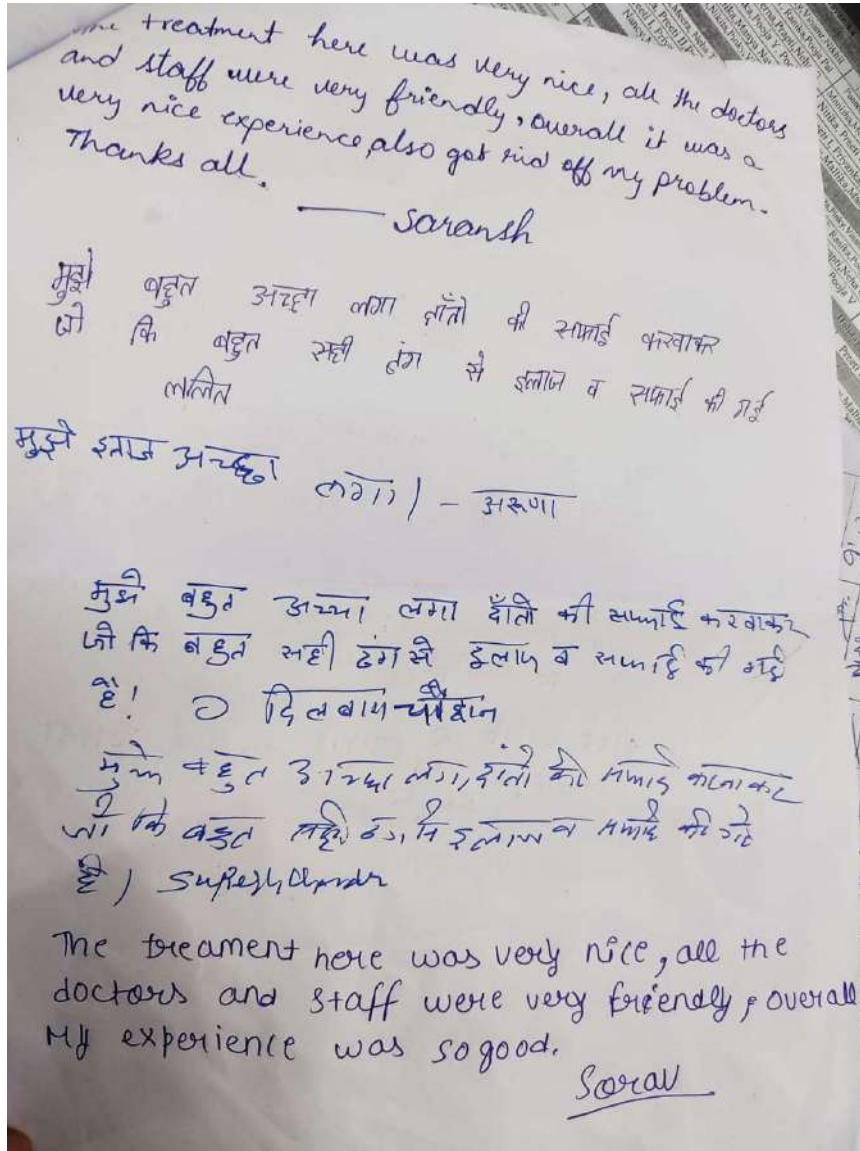 The treatment here was very nice, all the doctors
and staff were very friendly, overall it was a
very nice experience, also got rid off my problem.
Thanks all.
— Saransh
मुझे बहुत अच्छा लगा दाँतो की सफाई करवाकर
जो कि बहुत सही ढंग से इलाज व सफाई की गई
ललित
मुझे इलाज अच्छा लगा। - अरूणा
मुझे बहुत अच्छा लगा दाँतो की सफाई करवाकर
जो कि बहुत सही ढंग से इलाज व सफाई की गई
है! दिलबाग चौहान
मुझे बहुत अच्छा लगा, दांतो की सफाई करवाकर
जो कि बहुत सही ढंग से इलाज व सफाई की गई
है। Suresh Chander
The treament here was very nice, all the
doctors and staff were very friendly, overall
My experience was so good.
Sorav